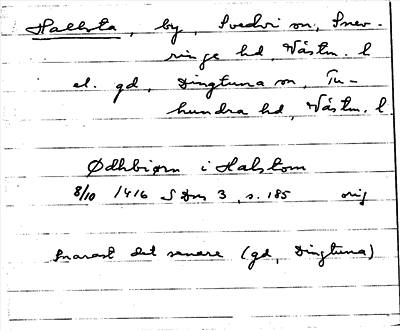 Hallsta, by, Svedvi sn, Snev-
ringe hd, Västm. l
el. gd, Dingtuna sn, Tu-
hundra hd, Västm. l
Ødhbiørn i Halstom
8/10 1416 SDns 3, s. 185 orig
snarast det senare (gd, Dingtuna)